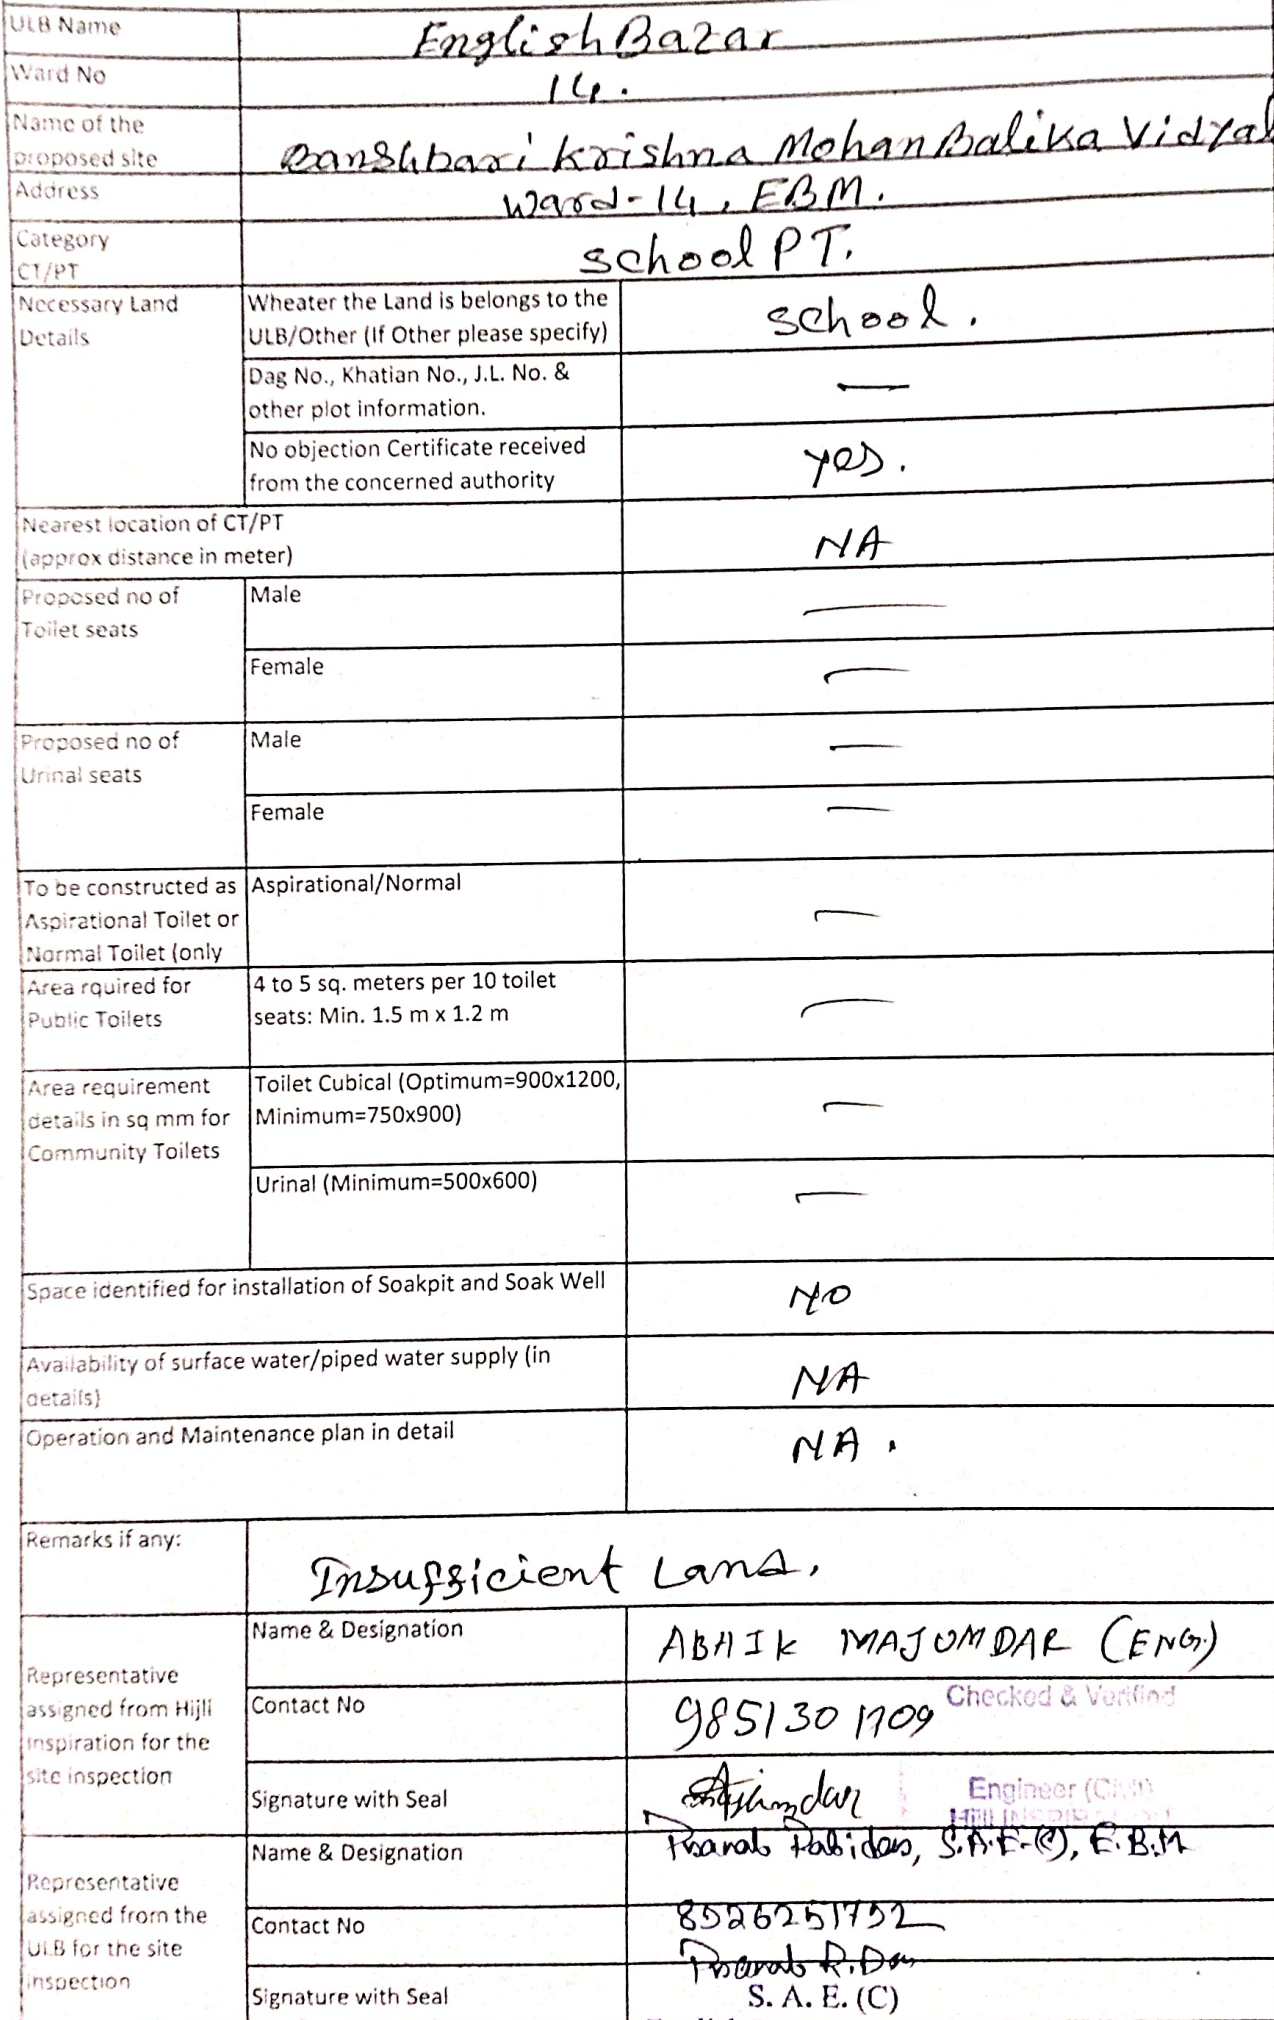 ULB Name English Bazar
Ward No 14.
Name of the
proposed site Banshbari Krishna Mohan Balika Vidyal
Address Ward-14, EBM.
Category
CT/PT School PT.
Necessary Land
Details
Wheater the Land is belongs to the
ULB/Other (If Other please specify) School.
Dag No., Khatian No., J.L. No. &
other plot information. —
No objection Certificate received
from the concerned authority yes.
Nearest location of CT/PT
(approx distance in meter) NA
Proposed no of
Toilet seats
Male —
Female —
Proposed no of
Urinal seats
Male —
Female —
To be constructed as
Aspirational Toilet or
Normal Toilet (only
Aspirational/Normal —
Area rquired for
Public Toilets
4 to 5 sq. meters per 10 toilet
seats: Min. 1.5 m x 1.2 m —
Area requirement
details in sq mm for
Community Toilets
Toilet Cubical (Optimum=900x1200,
Minimum=750x900) —
Urinal (Minimum=500x600) —
Space identified for installation of Soakpit and Soak Well NO
Availability of surface water/piped water supply (in
details) NA
Operation and Maintenance plan in detail NA.
Remarks if any: Insufficient Land.
Representative
assigned from Hijli
Inspiration for the
site inspection
Name & Designation ABHIK MAJUMDAR (ENG.)
Contact No 9851301709
Checked & Verified
Signature with Seal
Engineer (Civil)
Hijli
Representative
assigned from the
ULB for the site
inspection
Name & Designation Pranab Rabidas, S.A.E-(C), E.B.M
Contact No
Signature with Seal Pranab R. Das
S. A. E. (C)